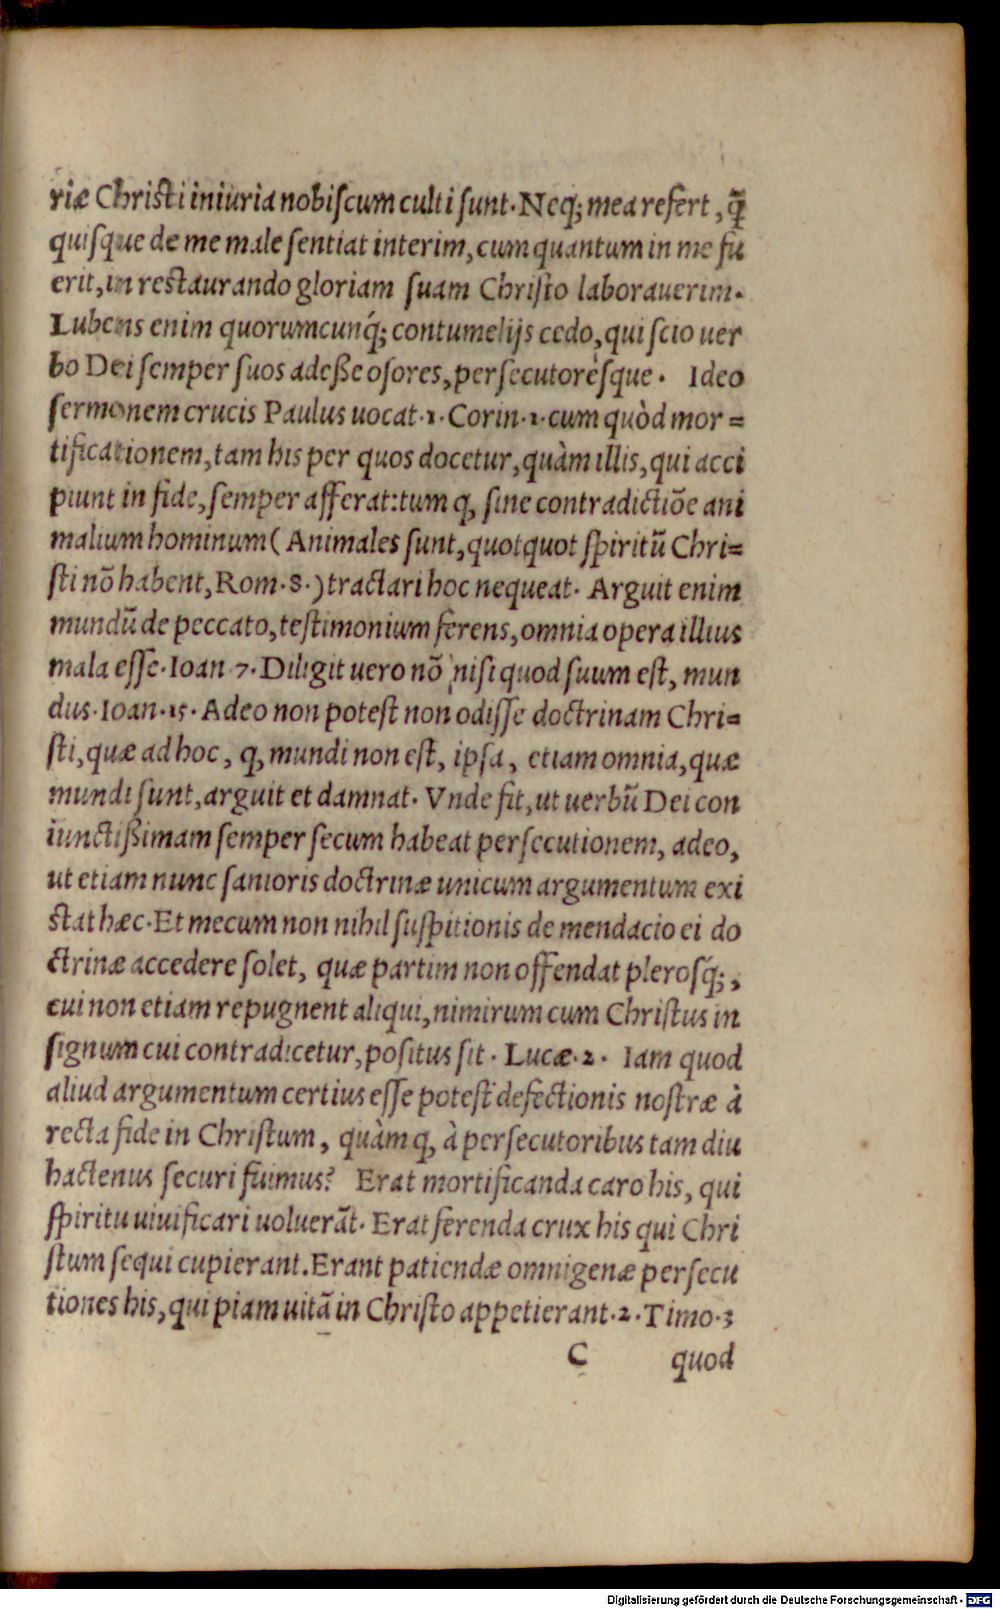 riæ Christi iniuria nobiscum culti sunt. Neq́; mea refert, q̃
quisque de me male sentiat interim, cum quantum in me fu
erit, in restaurando gloriam suam Christo laborauerim.
Lubens enim quorumcunq́; contumelijs cedo, qui scio uer
bo Dei semper suos adeße osores, persecutorésque. Ideo
sermonem crucis Paulus uocat. 1. Corin. 1. cum quòd mor=
tificationem, tam his per quos docetur, quàm illis, qui acci
piunt in fide, semper afferat: tum q, sine contradictiõe ani
malium hominum (Animales sunt, quotquot spiritũ Chri=
sti nõ habent, Rom. 8.) tractari hoc nequeat. Arguit enim
mundũ de peccato, testimonium ferens, omnia opera illius
mala esse. Ioan 7. Diligit uero nõ nisi quod suum est, mun
dus. Ioan. 15. Adeo non potest non odisse doctrinam Chri=
sti, quæ ad hoc, q, mundi non est, ipsa, etiam omnia, quæ
mundi sunt, arguit et damnat. Vnde fit, ut uerbũ Dei con
iunctißimam semper secum habeat persecutionem, adeo,
ut etiam nunc sanioris doctrinæ unicum argumentum exi
stat hæc. Et mecum non nihil suspitionis de mendacio ei do
ctrinæ accedere solet, quæ partim non offendat plerosq́;,
cui non etiam repugnent aliqui, nimirum cum Christus in
signum cui contradicetur, positus sit. Lucæ. 2. Iam quod
aliud argumentum certius esse potest defectionis nostræ à
recta fide in Christum, quàm q, à persecutoribus tam diu
hactenus securi fuimus? Erat mortificanda caro his, qui
spiritu uiuificari uoluerãt. Erat ferenda crux his qui Chri
stum sequi cupierant. Erant patiendæ omnigenæ persecu
tiones his, qui piam uitã in Christo appetierant. 2. Timo. 3
C quod
Digitalisierung gefördert durch die Deutsche Forschungsgemeinschaft - DFG